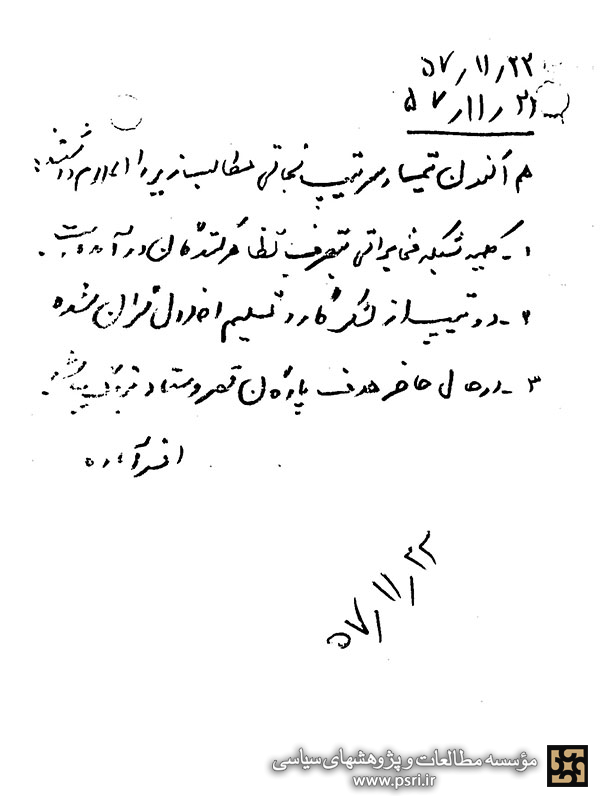 ۵۷٫۱۱٫۲۲
۵۷٫۱۱٫۲۱
هم اکنون تیمسار سرتیپ نجاتی مطالب زیر را اعلام داشتند:
۱ـ کلیه شبکه فنی براتی بتصرف تظاهرکنندگان در آمده است.
۲ـ دو تیپ از لشکر گارد تسلیم اخلالگران شده
۳ـ در حال حاضر هدف پادگان قصر و ستاد بزرگ میباشد.
افسر آماده
۵۷٫۱۱٫۲۲
مؤسسه مطالعات و پژوهشهای سیاسی
www.psri.ir